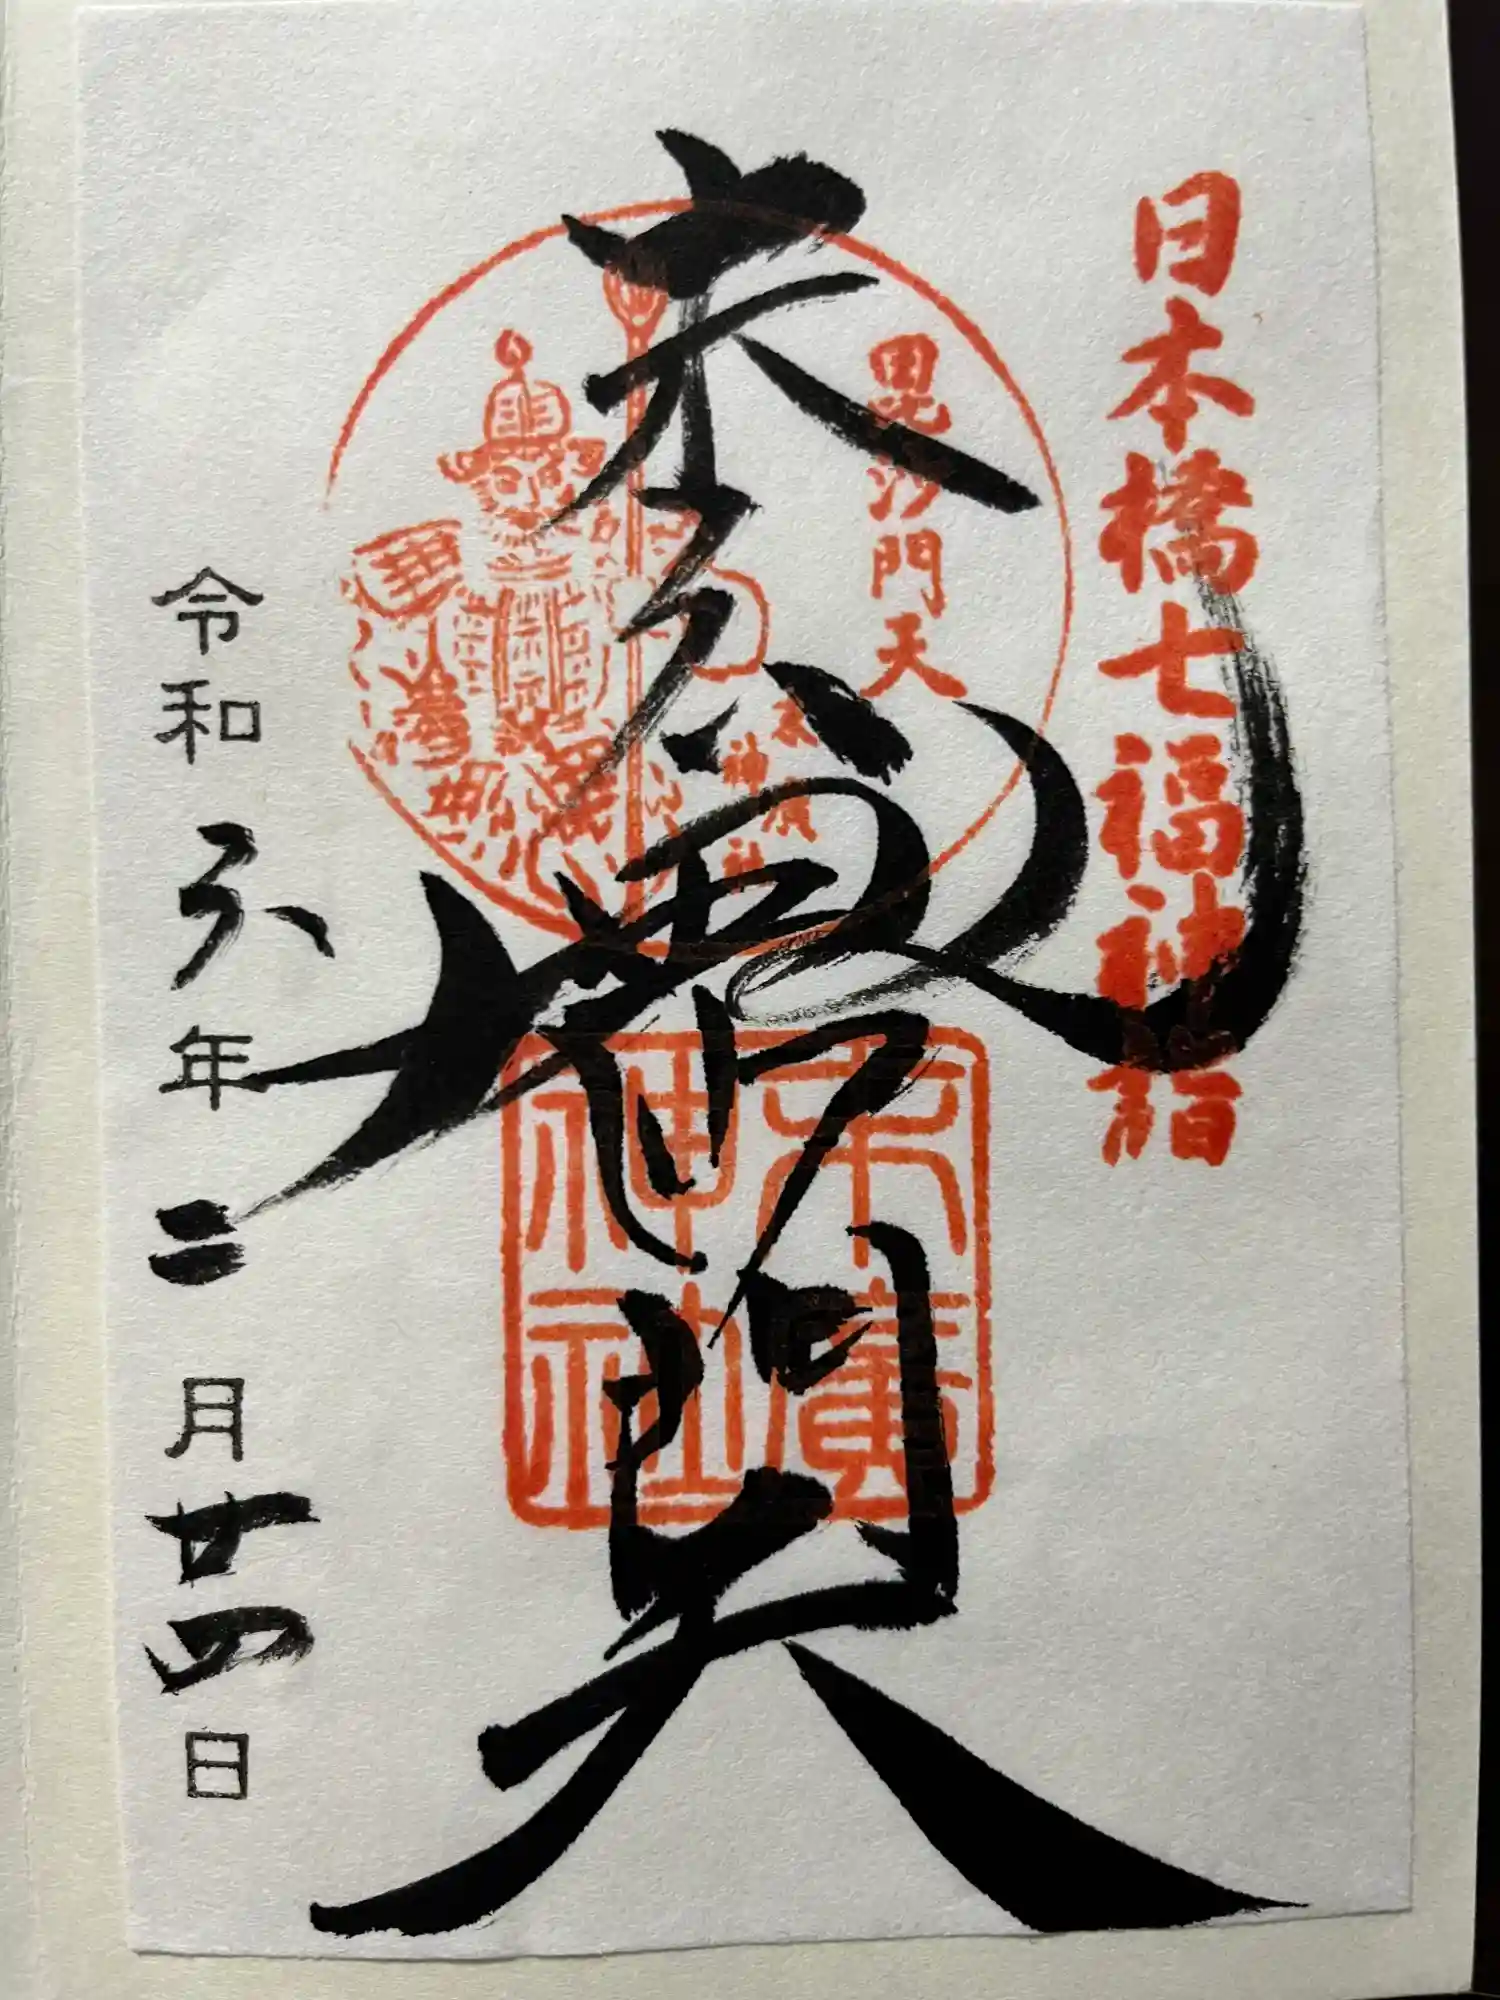 日本橋七福神詣
毘沙門天
末廣神社
毘沙門天
末廣神社
令和六年二月廿四日